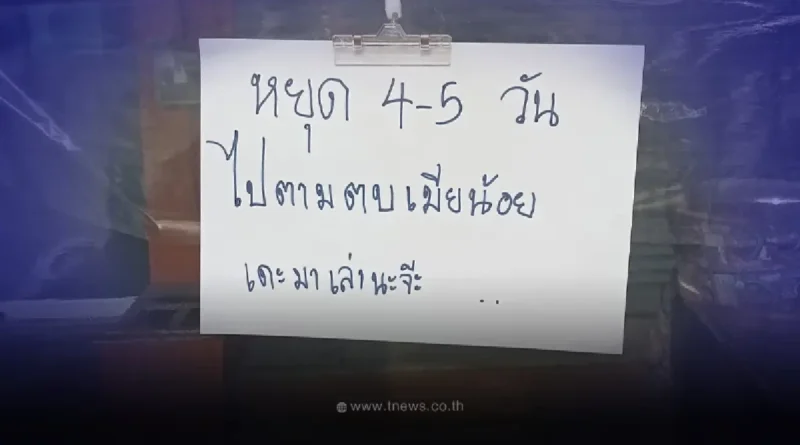 หยุด 4-5 วัน
ไปตามตบเมียน้อย
เดะมาเล่านะจ๊ะ
..
www.tnews.co.th